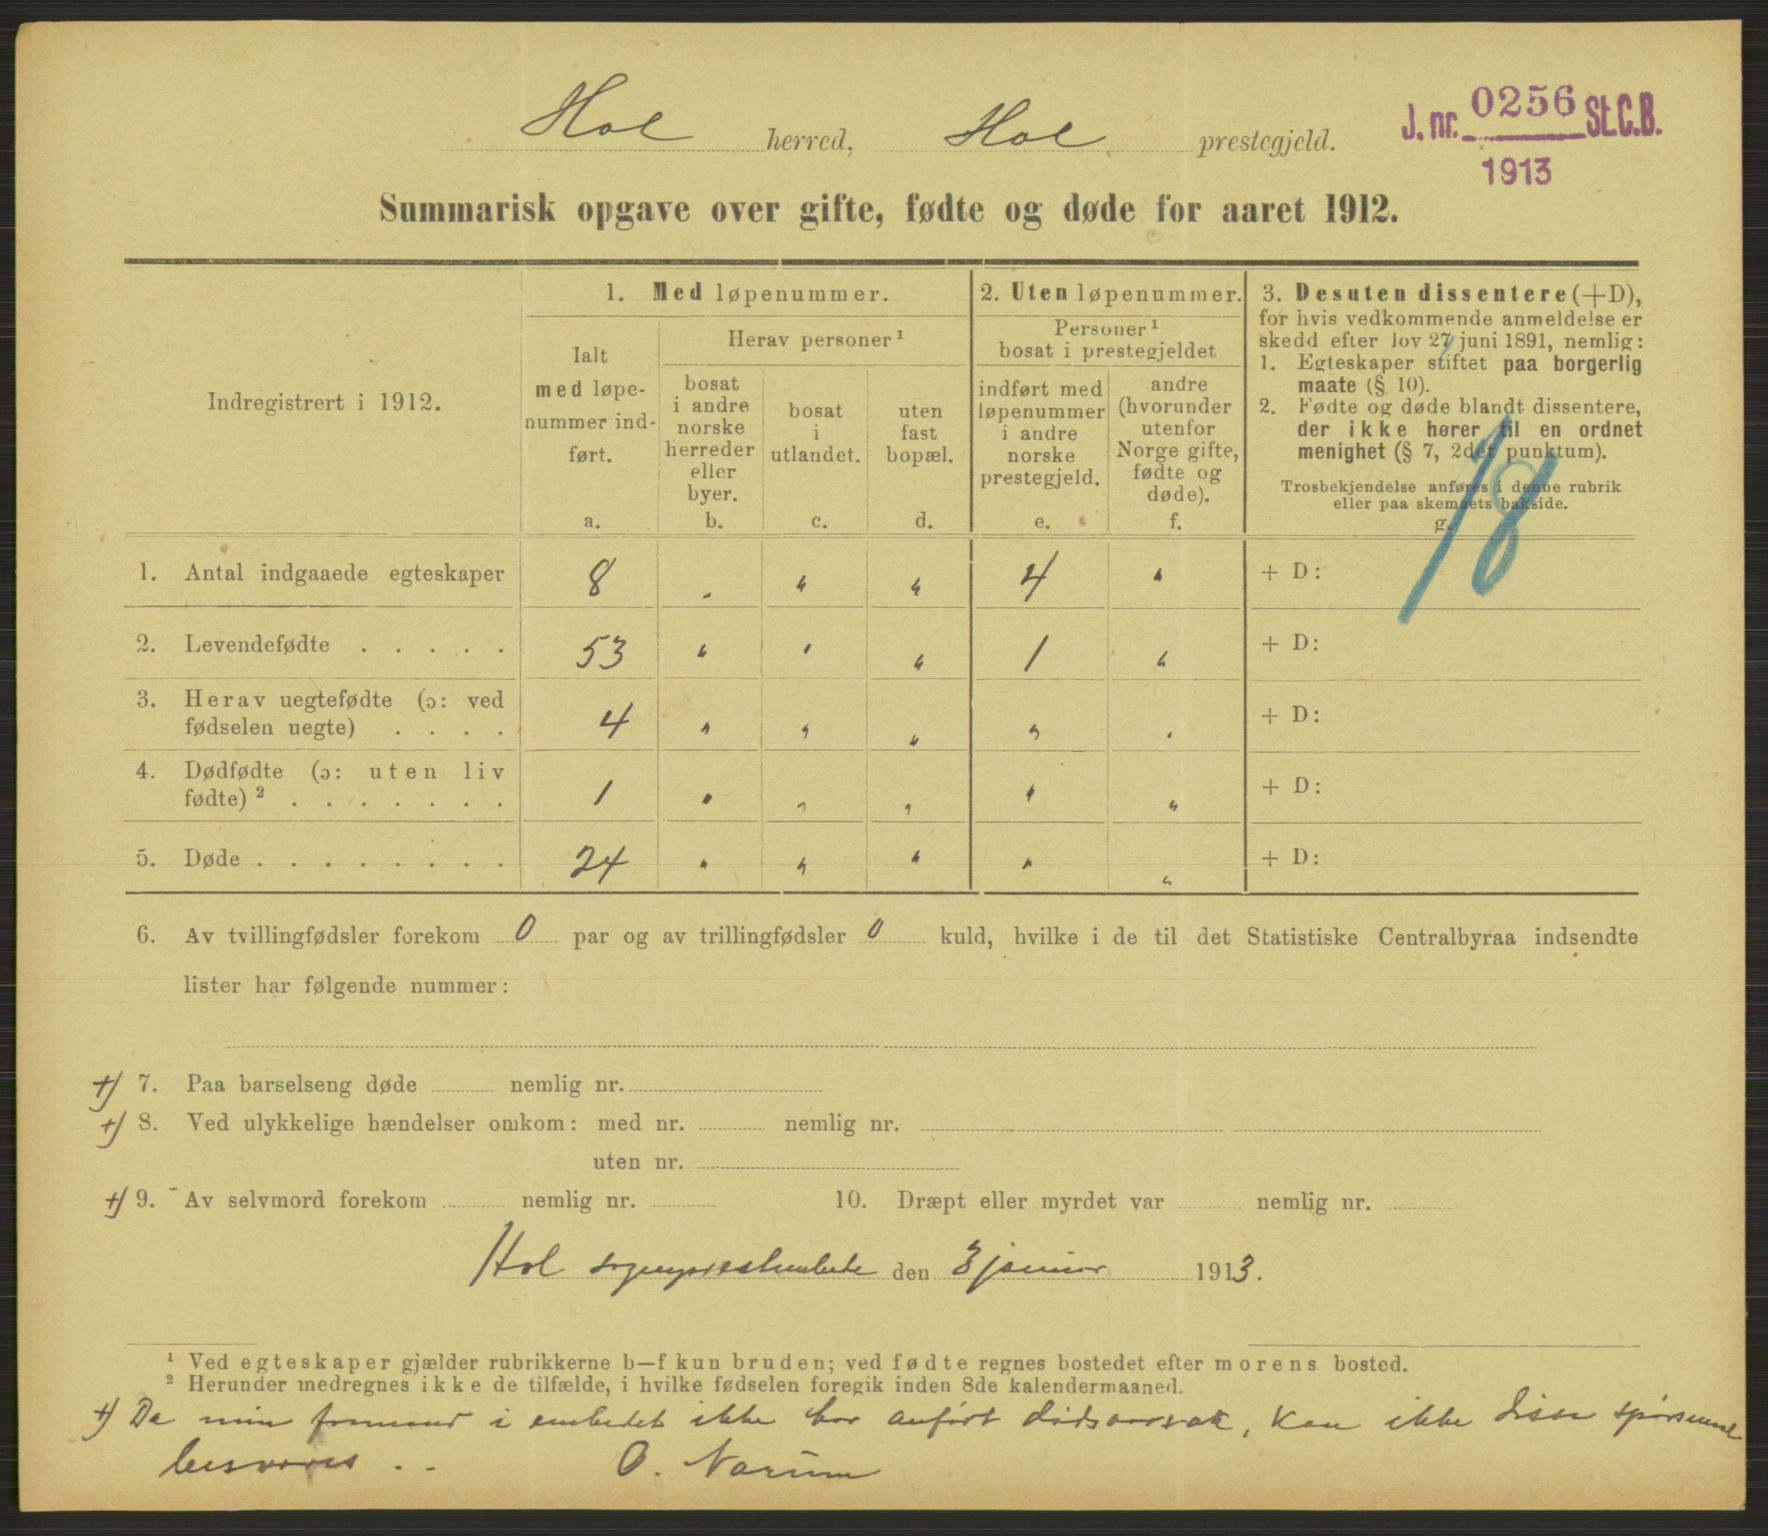 Hol herred, Hol prestegjeld.
J. nr. 0256 St.C.B.
1913
Summarisk opgave over gifte, fødte og døde for aaret 1912.
Indregistrert i 1912.
1. Med løpenummer.
Ialt
med løpe-
nummer ind-
ført.
a.
Herav personer ¹
bosat
i andre
norske
herreder
eller
byer.
b.
bosat
i
utlandet.
c.
uten
fast
bopæl.
d.
2. Uten løpenummer.
Personer ¹
bosat i prestegjeldet
indført med
løpenummer
i andre
norske
prestegjeld.
e.
andre
(hvorunder
utenfor
Norge gifte,
fødte og
døde).
f.
3. Desuten dissentere (+D),
for hvis vedkommende anmeldelse er
skedd efter lov 27 juni 1891, nemlig:
1. Egteskaper stiftet paa borgerlig
maate (§ 10).
2. Fødte og døde blandt dissentere,
der ikke hører til en ordnet
menighet (§ 7, 2det punktum).
Trosbekjendelse anføres i denne rubrik
eller paa skemaets bakside.
g.
18
1. Antal indgaaede egteskaper 8 " " " 4 " + D:
2. Levendefødte . . . . . 53 " " " 1 " + D:
3. Herav uegtefødte (ɔ: ved
fødselen uegte) . . . . 4 " " " " " + D:
4. Dødfødte (ɔ: uten liv
fødte) ² . . . . . . . 1 " " " " " + D:
5. Døde . . . . . . . . 24 " " " " " + D:
6. Av tvillingfødsler forekom 0 par og av trillingfødsler 0 kuld, hvilke i de til det Statistiske Centralbyraa indsendte
lister har følgende nummer:
+) 7. Paa barselseng døde nemlig nr.
+) 8. Ved ulykkelige hændelser omkom: med nr. nemlig nr.
uten nr.
+) 9. Av selvmord forekom nemlig nr. 10. Dræpt eller myrdet var nemlig nr.
Hol sogneprestembede den 3 januar 1913.
¹ Ved egteskaper gjælder rubrikkerne b—f kun bruden; ved fødte regnes bostedet efter morens bosted.
² Herunder medregnes ikke de tilfælde, i hvilke fødselen foregik inden 8de kalendermaaned.
+) Da min formand i embedet ikke har anført dødsaarsak, kan ikke disse spørsmaal
besvares . .
O. Narum